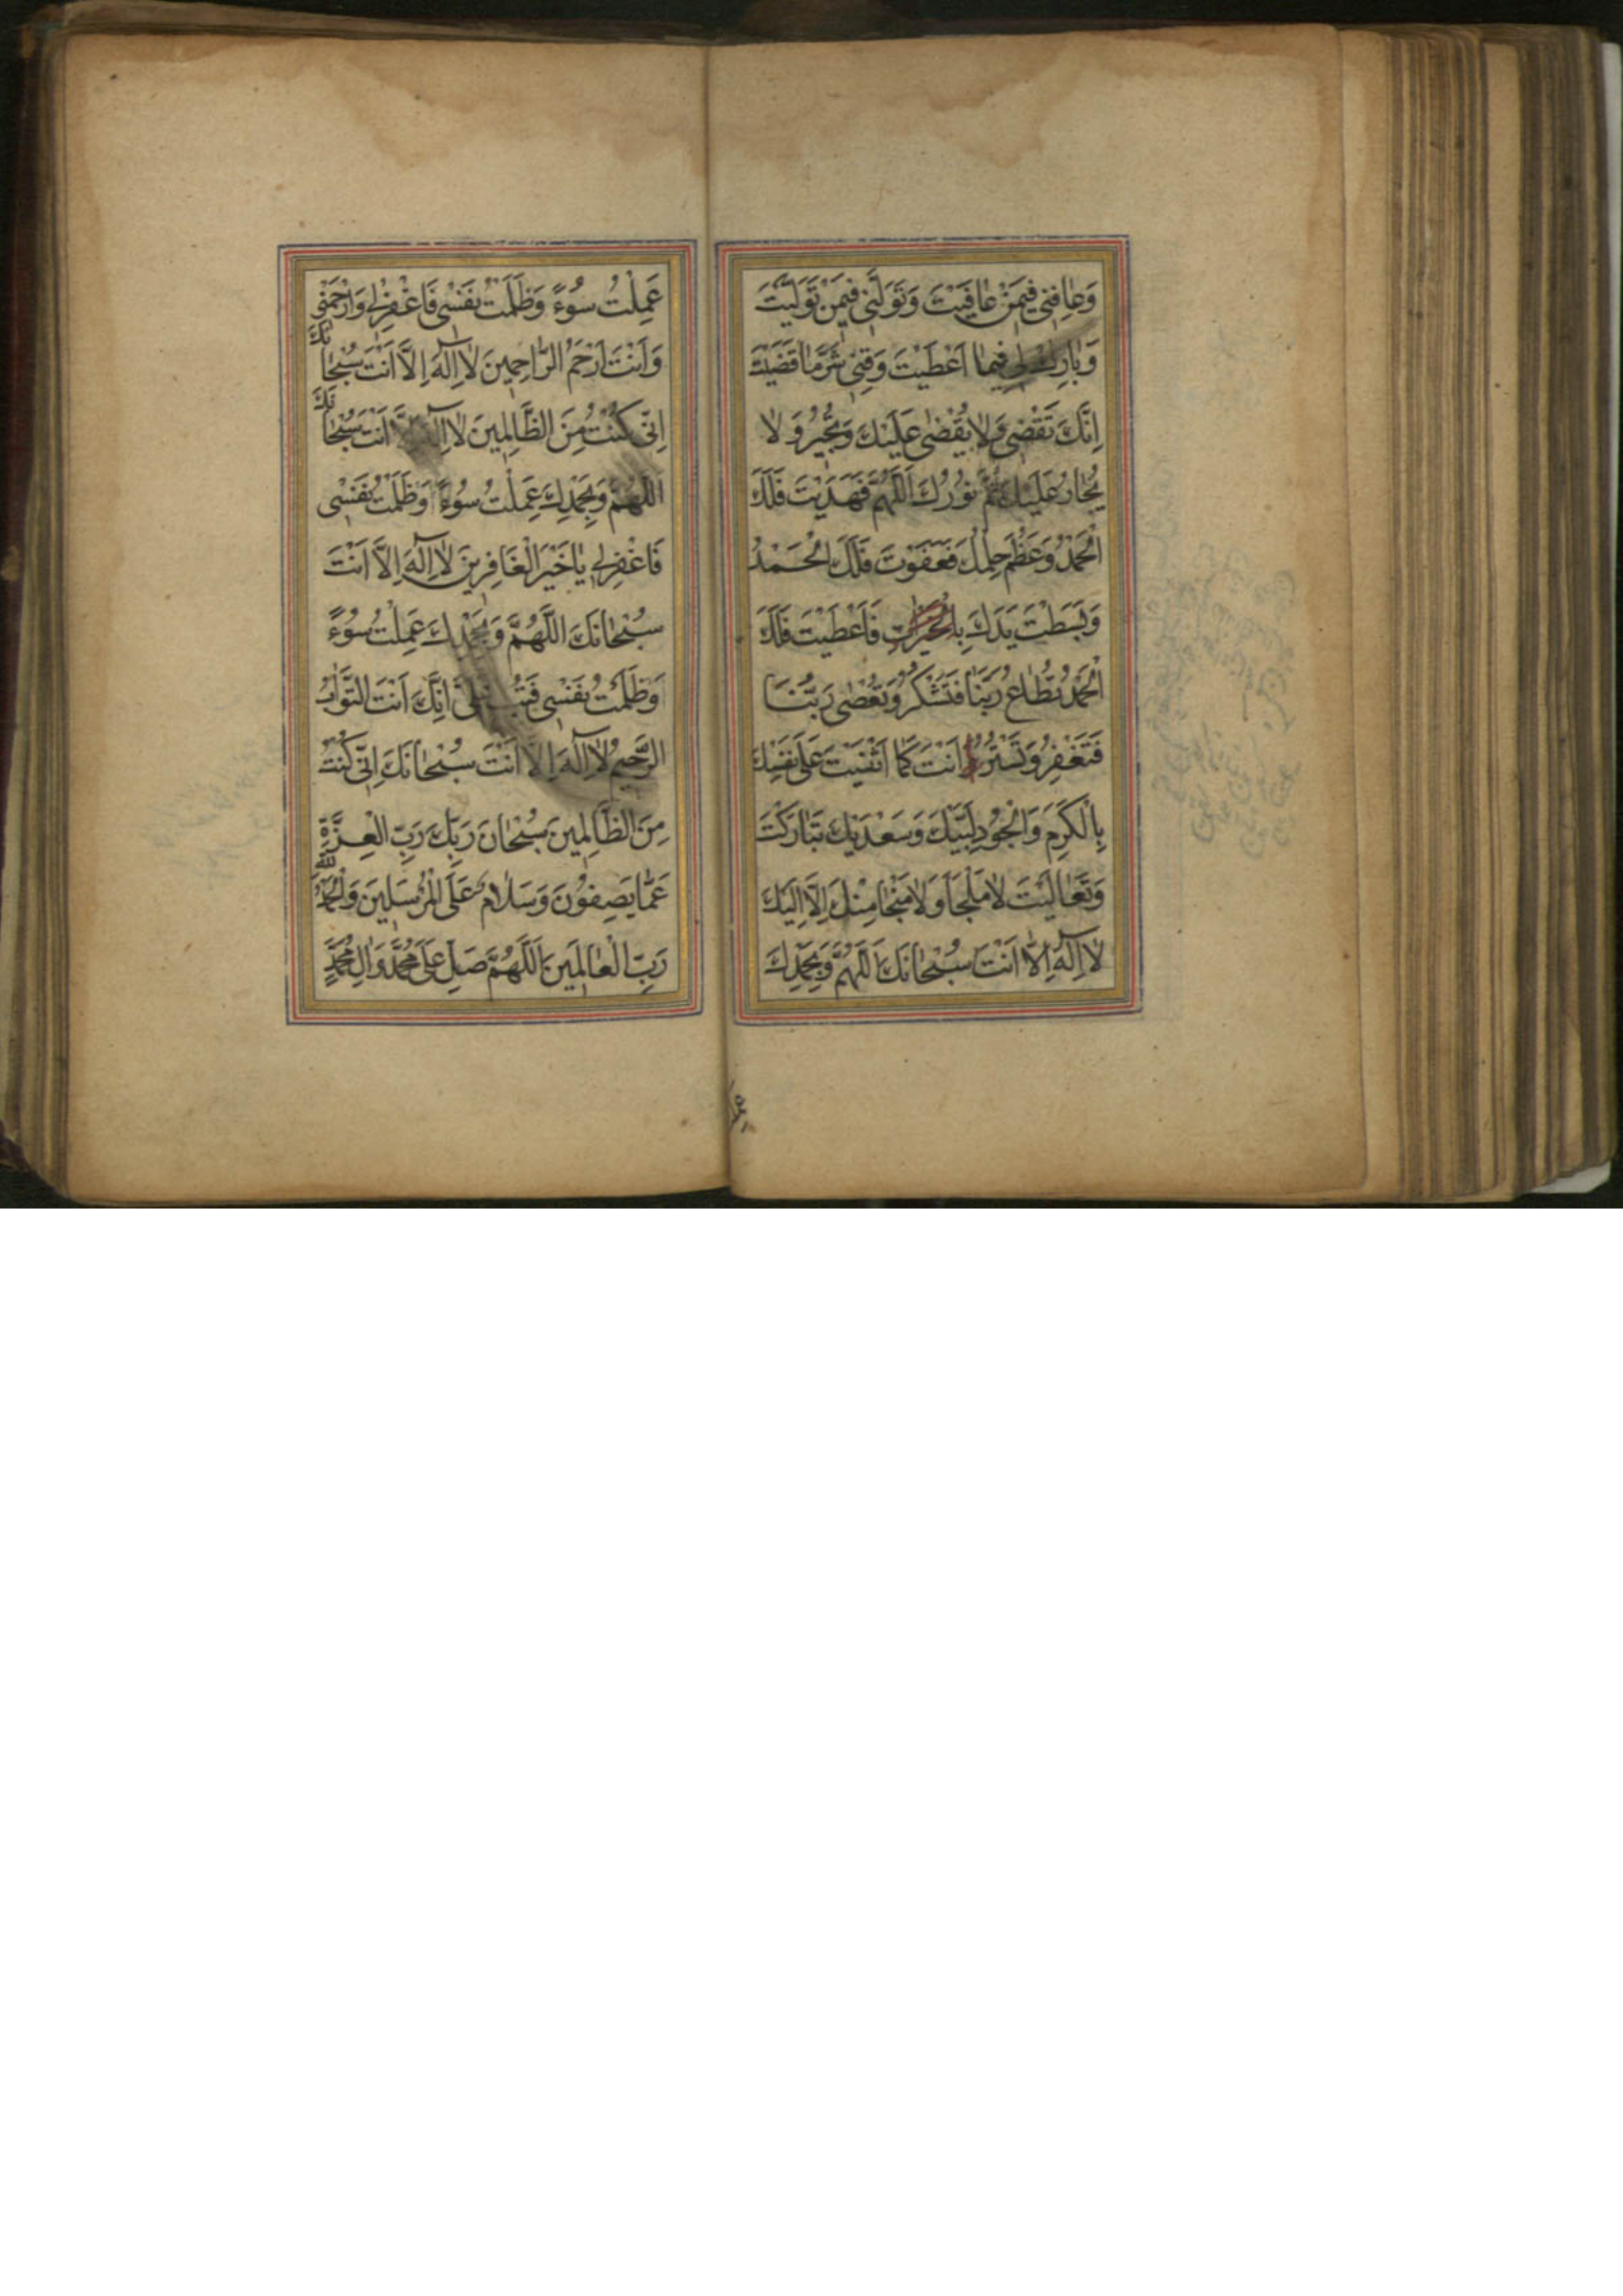 وَعٰافِنِي فِيمَنْ عٰافَيْتَ وَتَوَلَّنِي فِيمَنْ تَوَلَّيْتَ
وَبٰارِكْ لِي فِيمٰا اَعْطَيْتَ وَقِنِي شَرَّ مٰا قَضَيْتَ
اِنَّكَ تَقْضِي وَلٰا يُقْضٰى عَلَيْكَ وَتُجِيرُ وَلٰا
يُجٰارُ عَلَيْكَ تَمَّ نُورُكَ اَللّٰهُمَّ فَهَدَيْتَ فَلَكَ
الْحَمْدُ وَعَظُمَ حِلْمُكَ فَعَفَوْتَ فَلَكَ الْحَمْدُ
وَبَسَطْتَ يَدَكَ فَاَعْطَيْتَ فَلَكَ
الْحَمْدُ تُطٰاعُ رَبَّنٰا فَتَشْكُرُ وَتُعْصٰى رَبَّنٰا
فَتَغْفِرُ وَتَسْتُرُ اَنْتَ كَمٰا اَثْنَيْتَ عَلٰى نَفْسِكَ
بِالْكَرَمِ وَالْجُودِ لَبَّيْكَ وَسَعْدَيْكَ تَبٰارَكْتَ
وَتَعٰالَيْتَ لٰا مَلْجَأَ وَلٰا مَنْجٰا مِنْكَ اِلَّا اِلَيْكَ
لٰا اِلٰهَ اِلَّا اَنْتَ سُبْحٰانَكَ اَللّٰهُمَّ وَبِحَمْدِكَ
عَمِلْتُ سُوءً وَظَلَمْتُ نَفْسِي فَاغْفِرْ لِي وَارْحَمْنِي
وَاَنْتَ اَرْحَمُ الرّٰاحِمِينَ لٰا اِلٰهَ اِلَّا اَنْتَ سُبْحٰانَكَ
اِنِّي كُنْتُ مِنَ الظّٰالِمِينَ لٰا اِلٰهَ اِلَّا اَنْتَ سُبْحٰانَكَ
اللّٰهُمَّ وَبِحَمْدِكَ عَمِلْتُ سُوءً وَظَلَمْتُ نَفْسِي
فَاغْفِرْ لِي يٰا خَيْرَ الْغٰافِرِينَ لٰا اِلٰهَ اِلَّا اَنْتَ
سُبْحٰانَكَ اللّٰهُمَّ وَبِحَمْدِكَ عَمِلْتُ سُوءً
وَظَلَمْتُ نَفْسِي فَتُبْ عَلَيَّ اِنَّكَ اَنْتَ التَّوّٰابُ
الرَّحِيمُ لٰا اِلٰهَ اِلَّا اَنْتَ سُبْحٰانَكَ اِنِّي كُنْتُ
مِنَ الظّٰالِمِينَ سُبْحٰانَ رَبِّكَ رَبِّ الْعِزَّةِ
عَمّٰا يَصِفُونَ وَسَلٰامٌ عَلَى الْمُرْسَلِينَ وَالْحَمْدُ لِلّٰهِ
رَبِّ الْعٰالَمِينَ اَللّٰهُمَّ صَلِّ عَلٰى مُحَمَّدٍ وَاٰلِ مُحَمَّدٍ